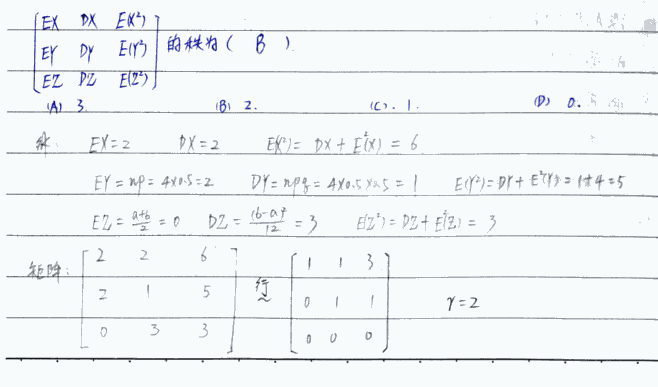 [EX DX E(X²)
EY DY E(Y²)
EZ DZ E(Z²)] 的秩为( B ).
(A) 3. (B) 2. (C). 1. (D) 0.
解: EX=2 DX=2 E(X²)= DX+E²(X) = 6
EY=np=4×0.5=2 DY=npq=4×0.5×0.5=1 E(Y²)=DY+E²(Y)=1+4=5
EZ=\frac{a+b}{2}=0 DZ=\frac{(b-a)²}{12}=3 E(Z²)=DZ+E²(Z)=3
矩阵: [2 2 6
2 1 5
0 3 3] 行~ [1 1 3
0 1 1
0 0 0] r=2